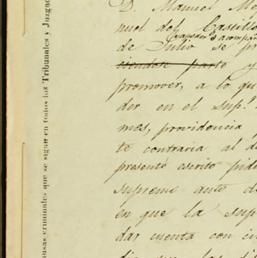 D. Manuel Mo
nuel del Castillo
de Julio se pr
ciendose parte y
promover, a lo qu
dor en el Sup.
mes, providencia
te contraria al de
presente escrito pide
Supremo auto d
en que la sup
dar cuenta con
ausas criminales que se sigan en todos los Tribunales y Juzga